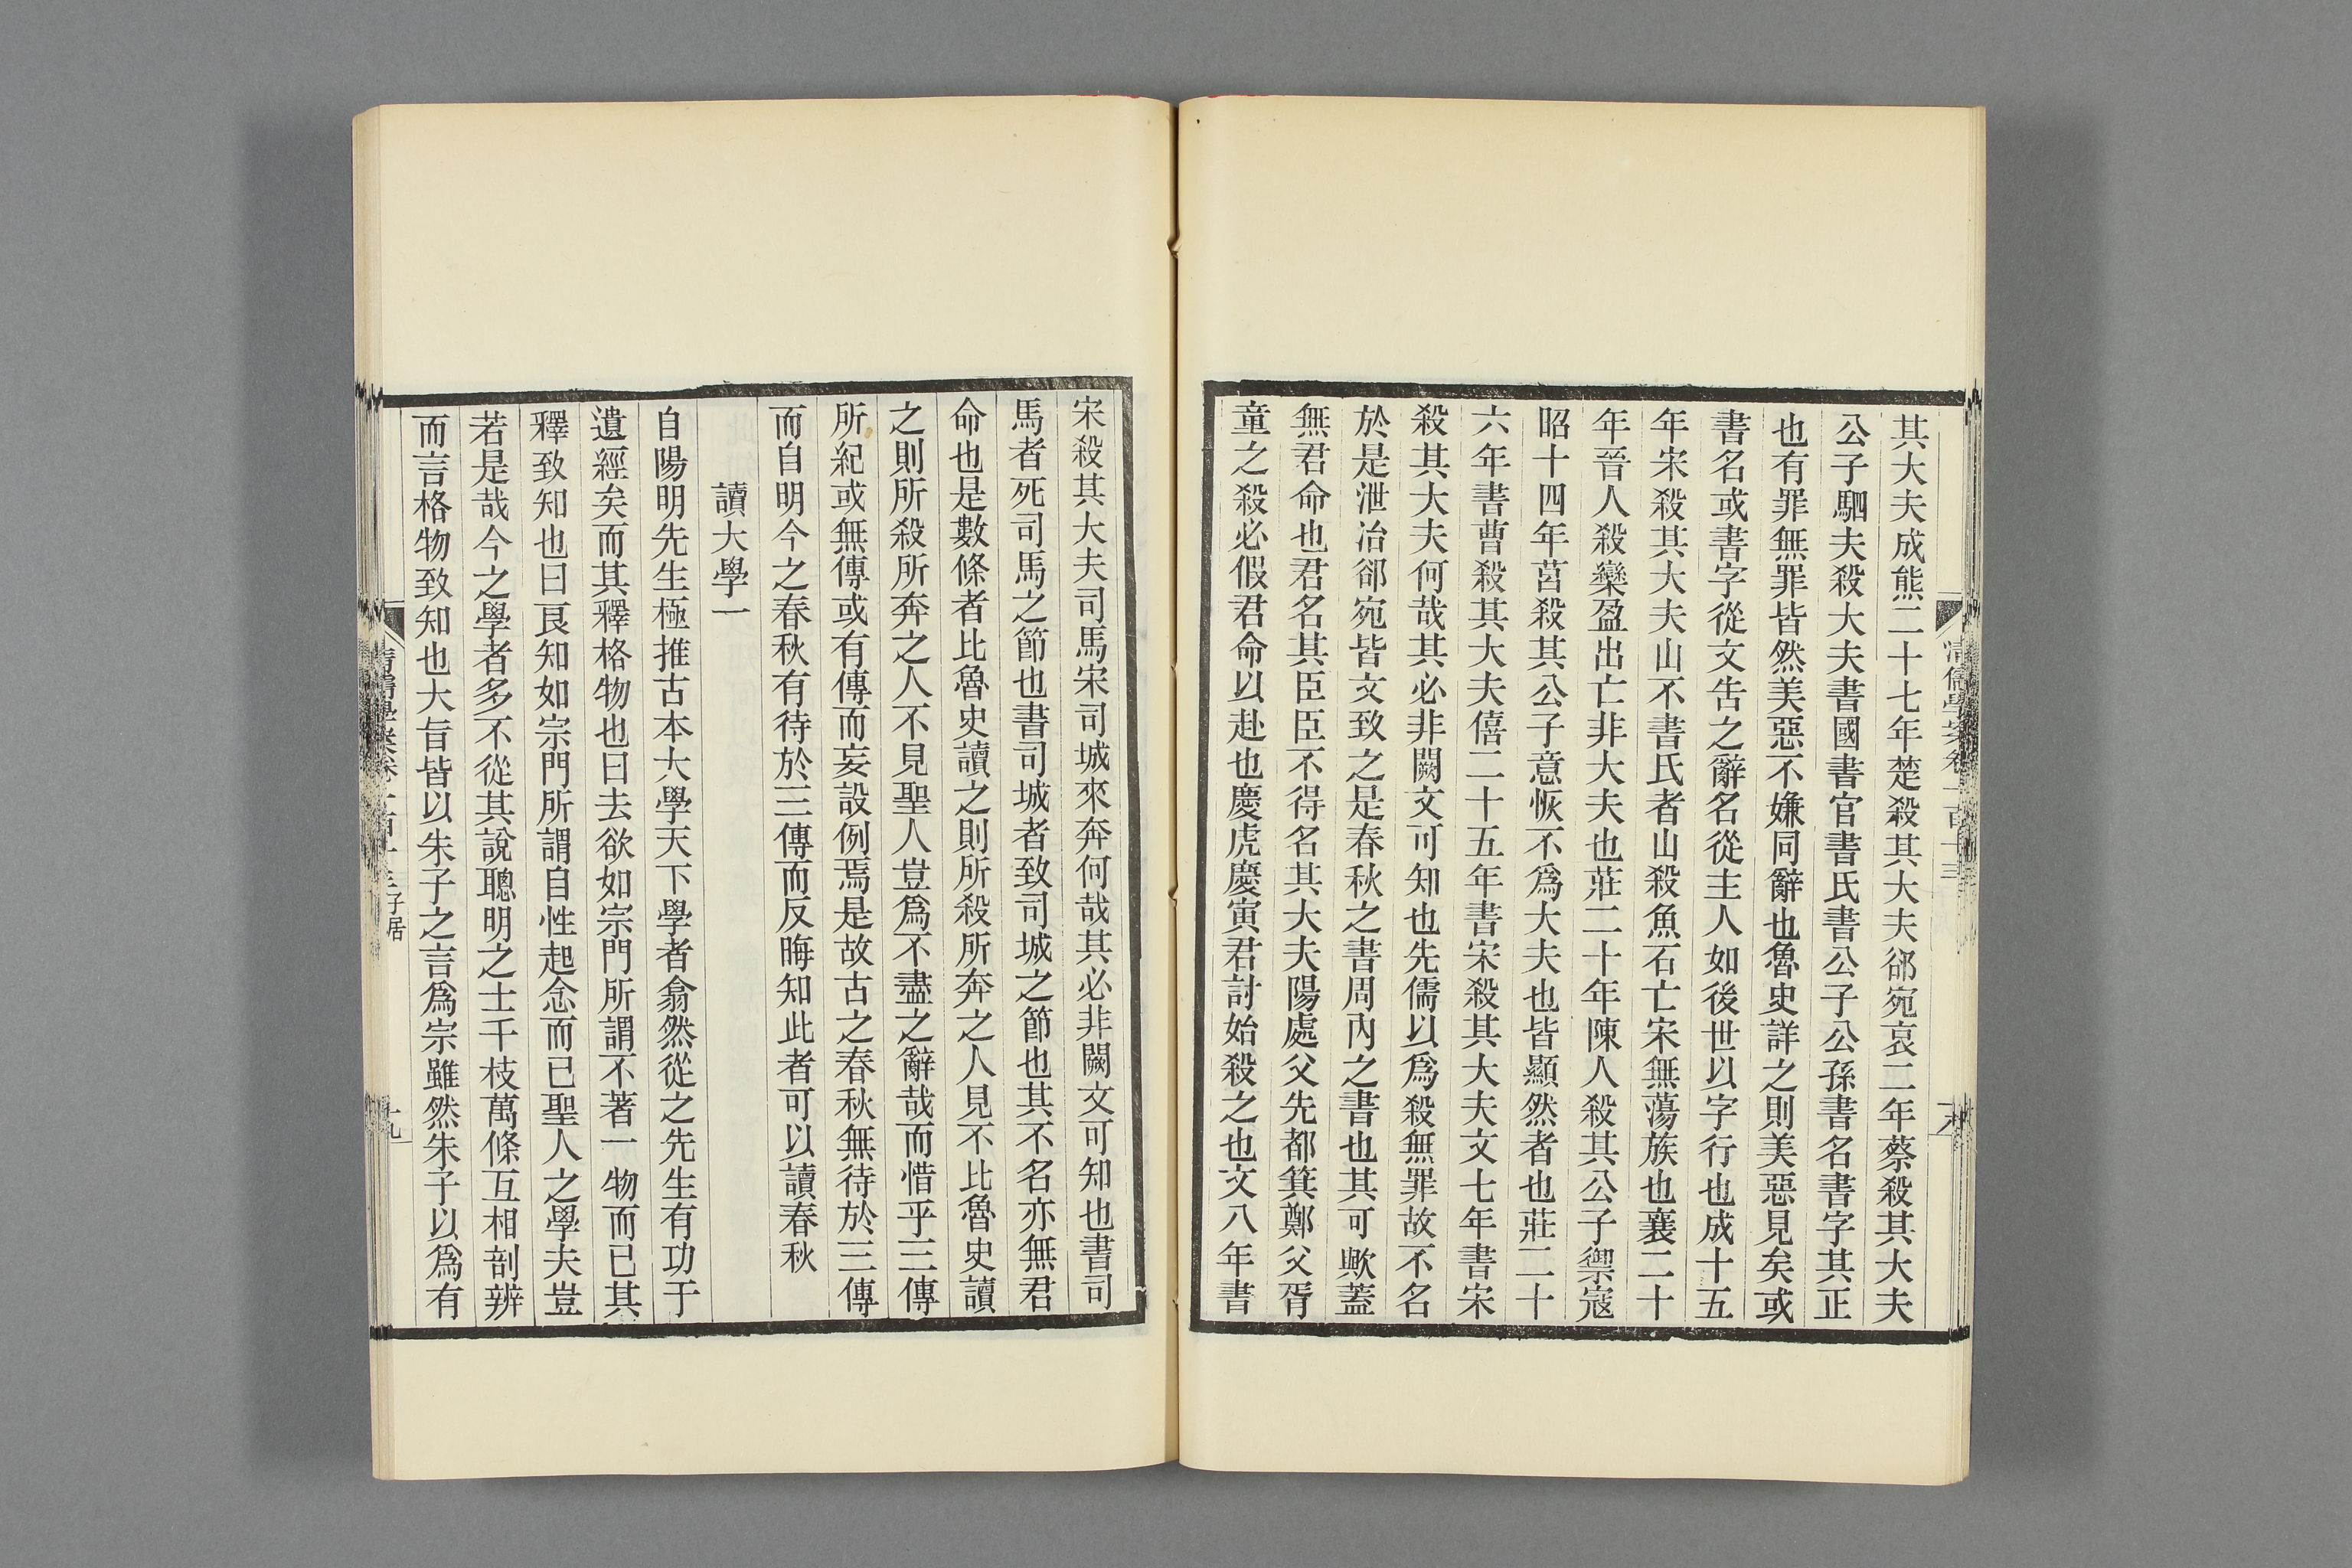 其大夫成熊二十七年楚殺其大夫郤宛哀二年蔡殺其大夫
公子駟夫殺大夫書國書官書氏書公子公孫書名書字其正
也有罪無罪皆然美惡不嫌同辭也魯史詳之則美惡見矣或
書名或書字從文吿之辭名從主人如後世以字行也成十五
年宋殺其大夫山不書氏者山殺魚石亡宋無蕩族也襄二十
年晉人殺欒盈出亡非大夫也莊二十年陳人殺其公子禦寇
昭十四年莒殺其公子意恢不爲大夫也皆顯然者也莊二十
六年書曹殺其大夫僖二十五年書宋殺其大夫文七年書宋
殺其大夫何哉其必非闕文可知也先儒以爲殺無罪故不名
於是泄冶郤宛皆文致之是春秋之書周內之書也其可歟蓋
無君命也君名其臣臣不得名其大夫陽處父先都箕鄭父胥
童之殺必假君命以赴也慶虎慶寅君討始殺之也文八年書
宋殺其大夫司馬宋司城來奔何哉其必非闕文可知也書司
馬者死司馬之節也書司城者致司城之節也其不名亦無君
命也是數條者比魯史讀之則所殺所奔之人見不比魯史讀
之則所殺所奔之人不見聖人豈爲不盡之辭哉而惜乎三傳
所紀或無傳或有傳而妄設例焉是故古之春秋無待於三傳
而自明今之春秋有待於三傳而反晦知此者可以讀春秋
讀大學一
自陽明先生極推古本大學天下學者翕然從之先生有功于
遺經矣而其釋格物也曰去欲如宗門所謂不著一物而已其
釋致知也曰良知如宗門所謂自性起念而已聖人之學夫豈
若是哉今之學者多不從其說聰明之士千枝萬條互相剖辨
而言格物致知也大旨皆以朱子之言爲宗雖然朱子以爲有
子居
十九